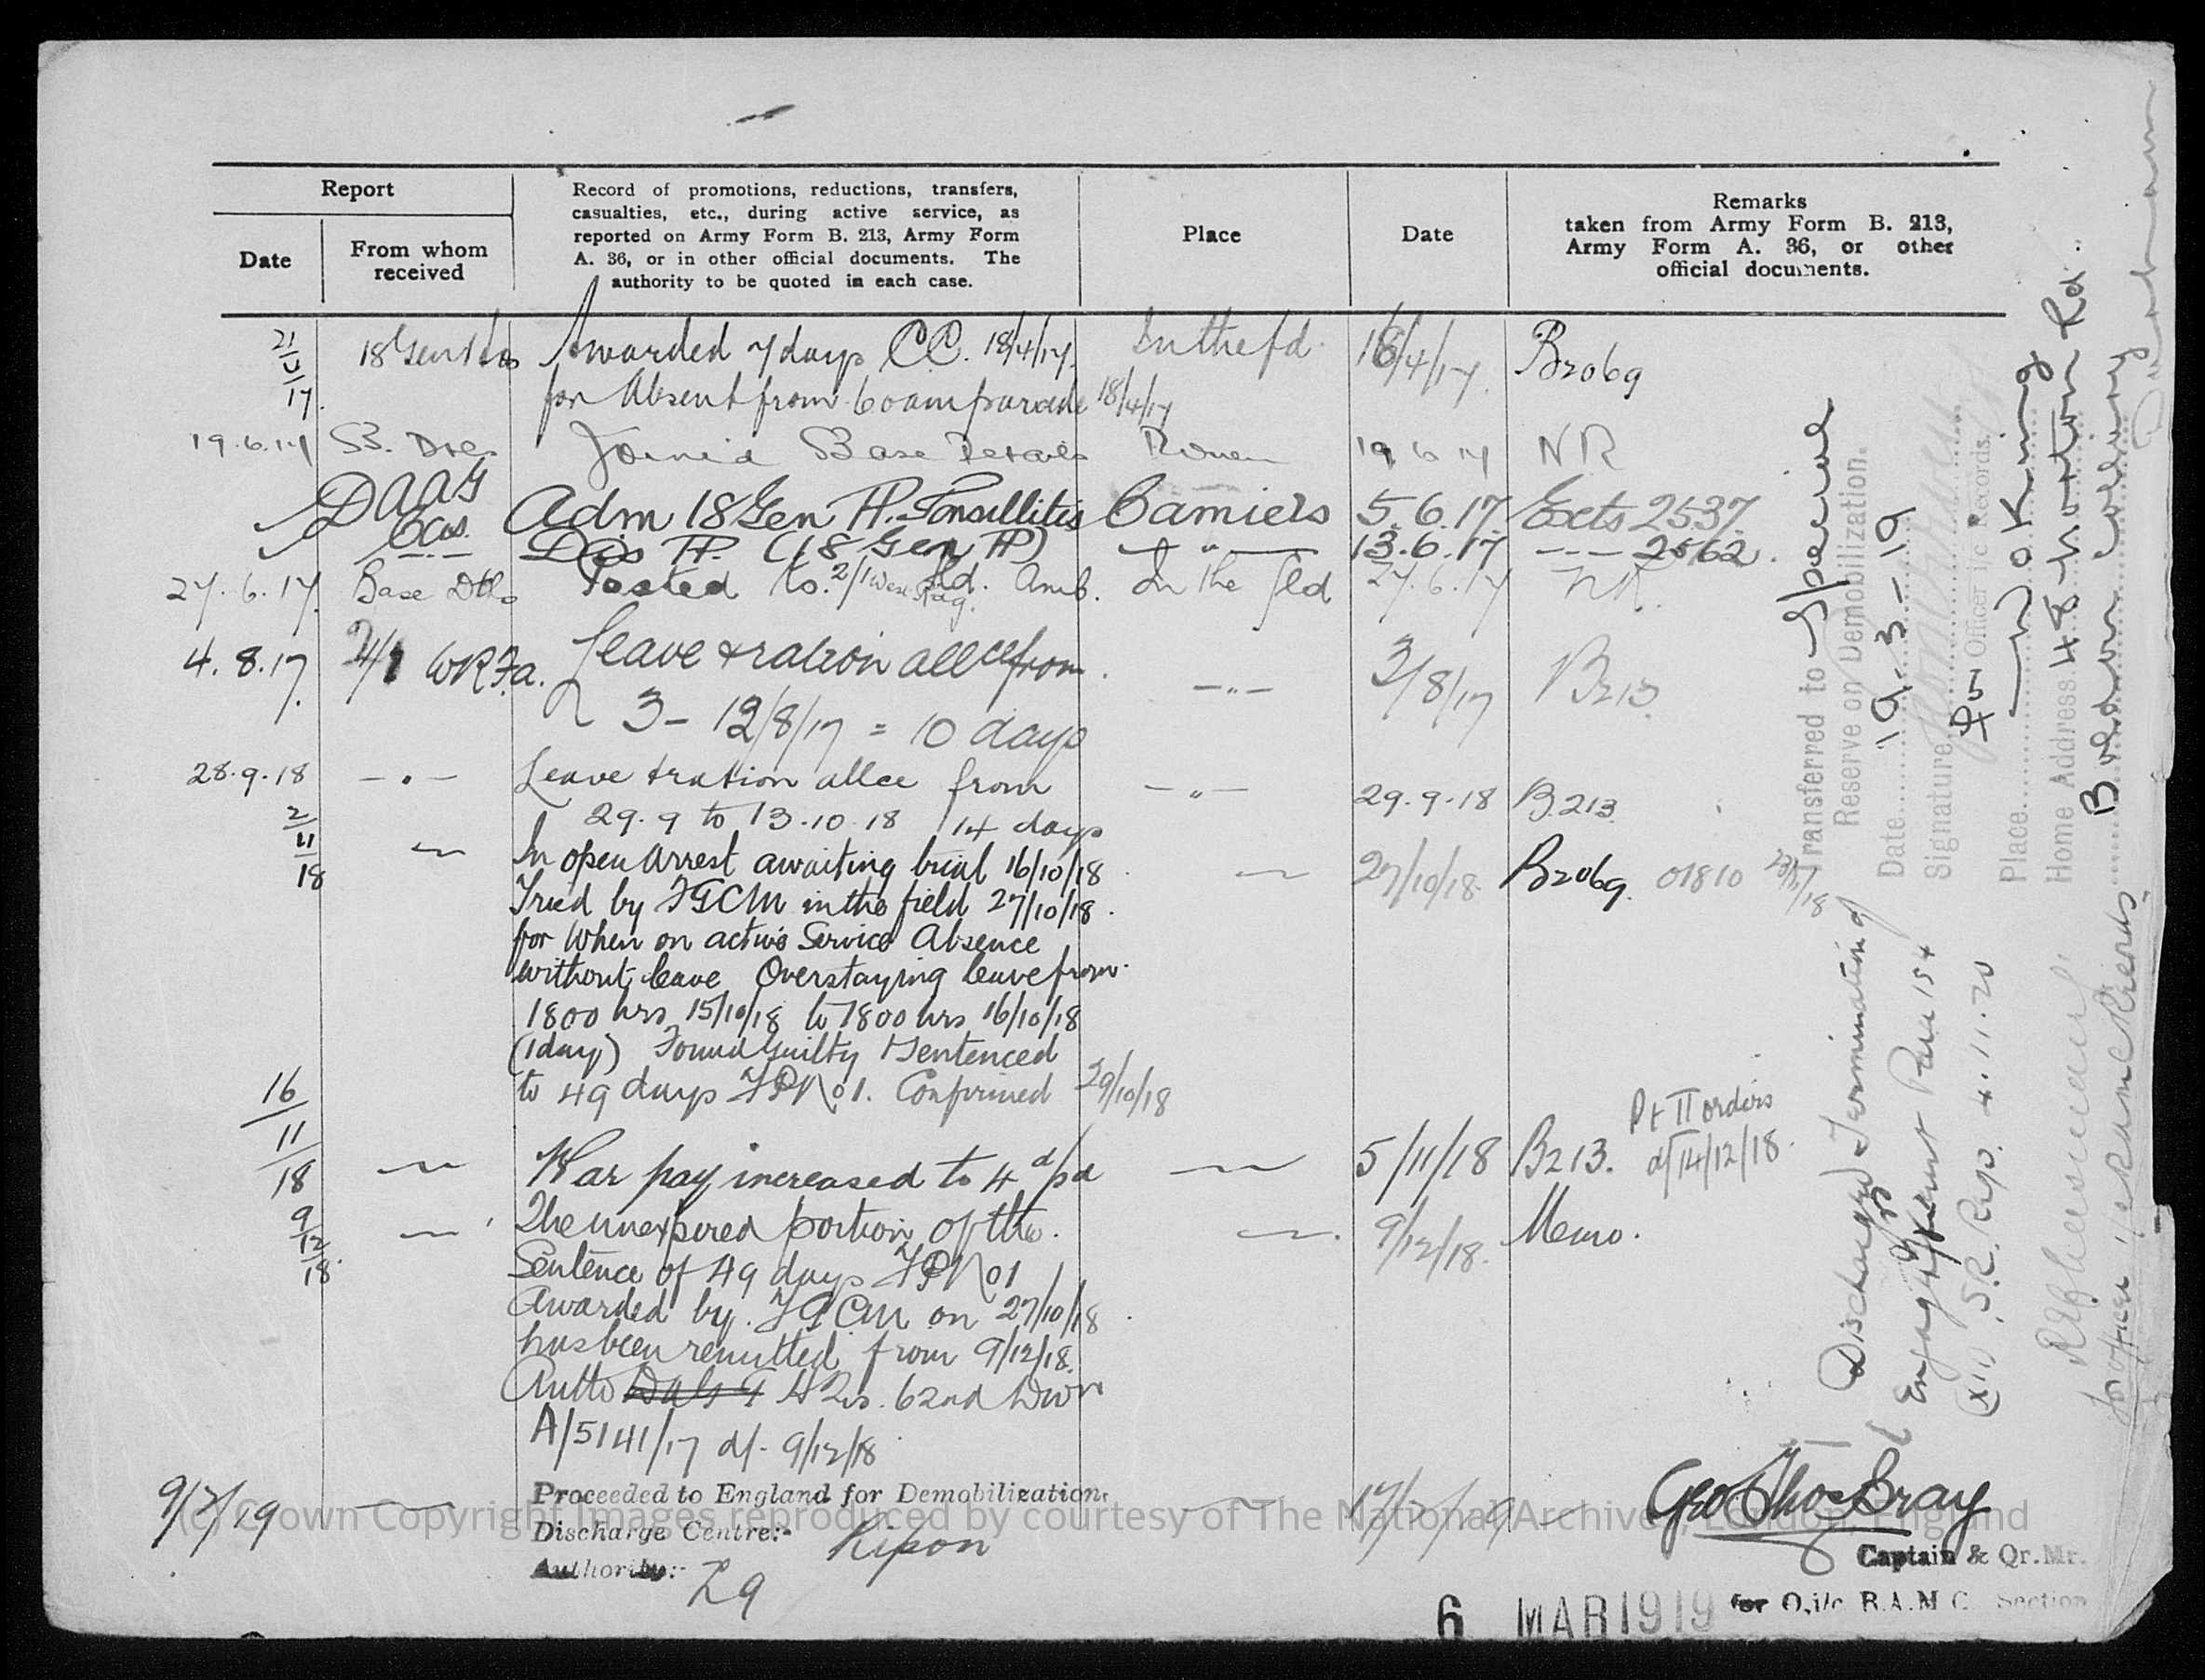 Report
Date
From whom
received
Record of promotions, reductions, transfers,
casualties, etc., during active service, as
reported on Army Form B. 213, Army Form
A. 36, or in other official documents. The
authority to be quoted in each case.
Place
Date
Remarks
taken from Army Form B. 213,
Army Form A. 36, or other
official documents.
21/5/17 18 Gen Hos Awarded 7 days C.C. 18/4/17. In the fd. 18/4/17. B2069
for Absent from 6 0 am parade 18/4/17
19.6.17 B. Dtls Joined Base Details Rouen 19 6 17 NR
DAAG Adm 18 Gen H. Tonsillitis Camiers 5.6.17. Exts 2537.
Cas. Dis H. (18 Gen H) — " — 13.6.17 --- 2562.
27.6.17. Base Dtls Posted to 2/1 West Rdg. Fd. Amb. In the fld 27.6.17 NR.
4.8.17. 2/1 WRFa. Leave & ration allce from — " — 3/8/17 B213
3 - 12/8/17 = 10 days
28.9.18 — " — Leave & ration allce from — " — 29.9.18 B.213
29.9 to 13.10.18 14 days
2/11/18 In open Arrest awaiting trial 16/10/18 27/10/18. B2069. 01810
Tried by FGCM in the field 27/10/18.
for When on active Service Absence
without leave Overstaying leave from
1800 hrs 15/10/18 to 1800 hrs 16/10/18
(1 day) Found Guilty & Sentenced
to 49 days FPNo1. Confirmed 29/10/18
16/11/18 War pay increased to 4d pd 5/11/18 B213. Pt II orders
d/14/12/18.
9/12/18 The unexpired portion of the 9/12/18. Memo.
Sentence of 49 days FPNo1
Awarded by FGCM on 27/10/18
has been remitted from 9/12/18.
Autho HQrs. 62nd Divn
A/5141/17 d/- 9/12/18
9/2/19 Proceeded to England for Demobilization.
Discharge Centre:- Ripon
Authority:- Z9
17/2/19
Geo Thos Bray
Captain & Qr. Mr.
for O.i/c R.A.M.C. Section
6 MAR 1919
Transferred to
Reserve on Demobilization.
Date 19-3-19
Signature
for Officer i/c Records.
Place Woking
Home Address. 48 Rd.
Discharged Terminating
Engagement Para 154
(XII) S.R. Regs. 4.11.20
for officer i/c R.A.M.C. Records
(c) Crown Copyright Images reproduced by courtesy of The National Archives, London, England